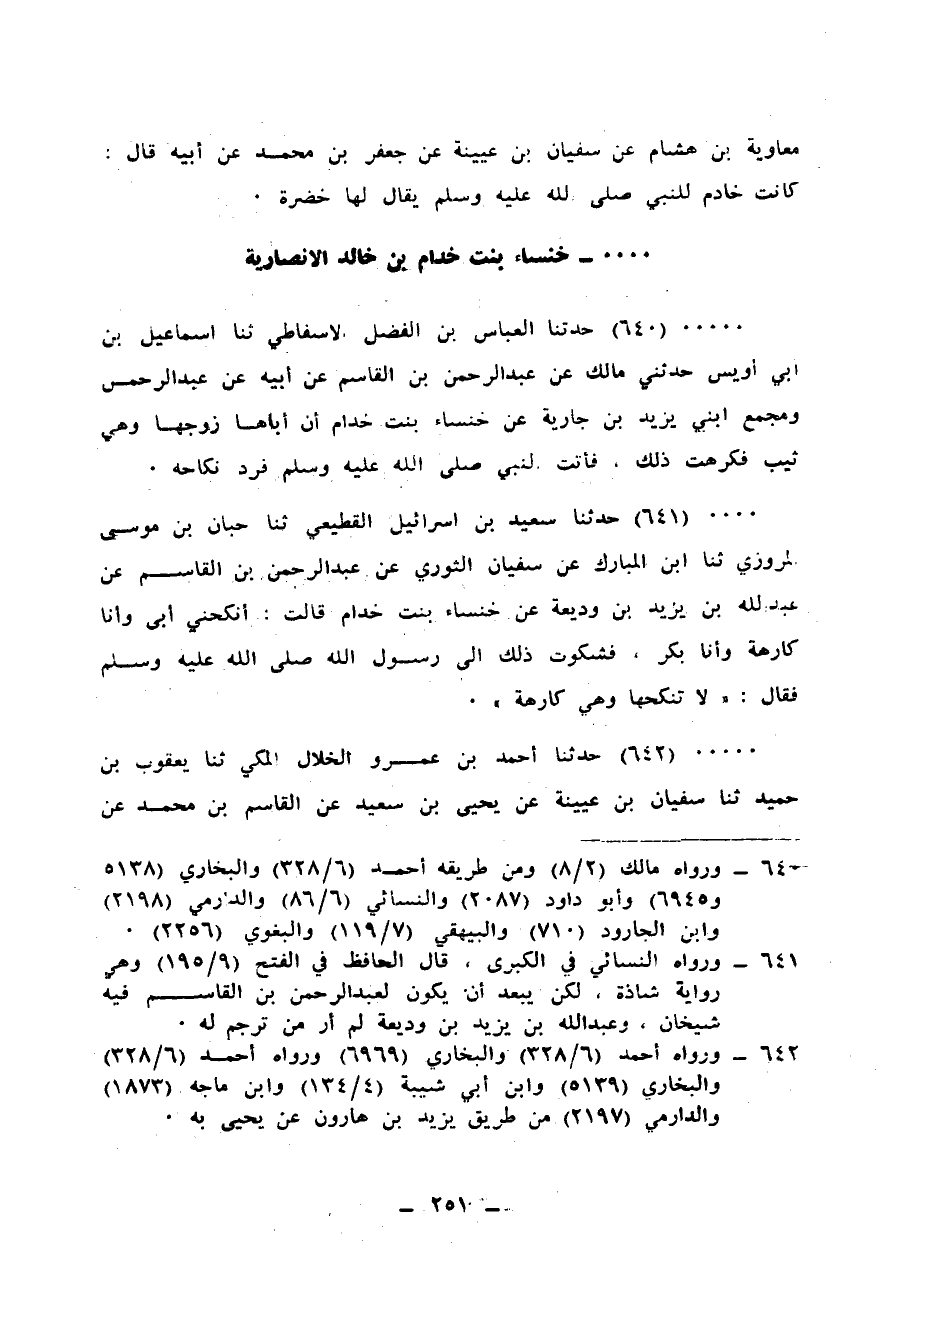 معاوية بن هشام عن سفيان بن عيينة عن جعفر بن محمــد عن أبيه قال :
كانت خادم للنبي صلى لله عليه وسلم يقال لها خضرة ٠
٠٠٠٠ ــ خنساء بنت خدام بن خالد الانصارية
٠٠٠٠٠ (٦٤٠) حدتنا العباس بن الفضل لاسفاطي ثنا اسماعيل بن
ابي أويس حدثني مالك عن عبدالرحمن بن القاسم عن أبيه عن عبدالرحمــن
ومجمع ابني يزيد بن جارية عن خنساء بنت خدام أن أباهــا زوجهــا وهي
ثيب فكرهت ذلك ، فأتت لنبي صلى الله عليه وسلم فرد نكاحه ٠
٠٠٠٠ (٦٤١) حدثنا سعيد بن اسرائيل القطيعي ثنا حبان بن موســى
لمروزي ثنا ابن المبارك عن سفيان الثوري عن عبدالرحمن بن القاســم عن
عبدلله بن يزيد بن وديعة عن خنساء بنت خدام قالت : أنكحني أبى وأنا
كارهة وأنا بكر ، فشكوت ذلك الى رســول الله صلى الله عليه وســلم
فقال : « لا تنكحها وهي كارهة » ٠
٠٠٠٠٠ (٦٤٢) حدثنا أحمد بن عمــرو الخلال المكي ثنا يعقوب بن
حميد ثنا سفيان بن عيينة عن يحيى بن سعيد عن القاسم بن محمــد عن
٦٤٠ ــ ورواه مالك (٨/٢) ومن طريقه أحمــد (٣٢٨/٦) والبخاري (٥١٣٨
و٦٩٤٥) وأبو داود (٢٠٨٧) والنسائي (٨٦/٦) والدارمي (٢١٩٨)
وابن الجارود (٧١٠) والبيهقي (١١٩/٧) والبغوي (٢٢٥٦) ٠
٦٤١ ــ ورواه النسائي في الكبرى ، قال الحافظ في الفتح (١٩٥/٩) وهي
رواية شاذة ، لكن يبعد أن يكون لعبدالرحمن بن القاســم فيه
شيخان ، وعبدالله بن يزيد بن وديعة لم أر من ترجم له ٠
٦٤٢ ــ ورواه أحمد (٣٢٨/٦) والبخاري (٦٩٦٩) ورواه أحمــد (٣٢٨/٦)
والبخاري (٥١٣٩) وابن أبي شيبة (١٣٤/٤) وابن ماجه (١٨٧٣)
والدارمي (٢١٩٧) من طريق يزيد بن هارون عن يحيى به ٠
ــ ٢٥١ ــ